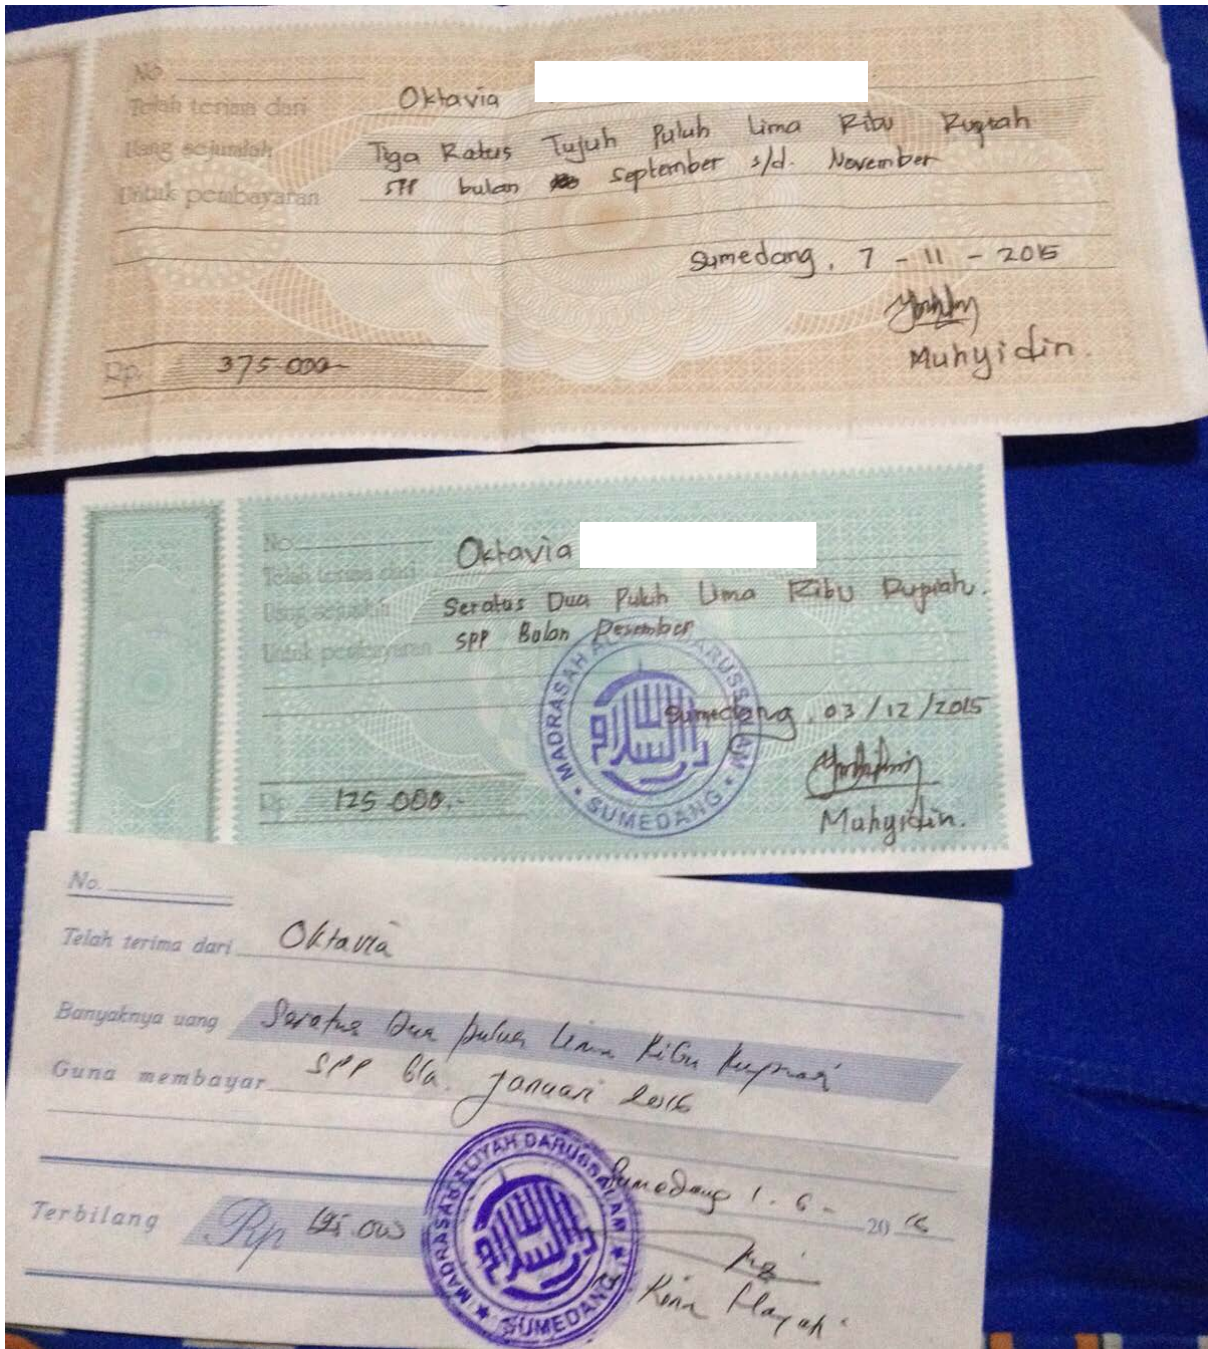 No.
Telah terima dari Oktavia
Uang sejumlah Tiga Ratus Tujuh Puluh Lima Ribu Rupiah
Untuk pembayaran SPP bulan September s/d. November
Sumedang, 7 - 11 - 2015
Rp. 375.000-
Muhyidin.
No.
Telah terima dari Oktavia
Uang sejumlah Seratus Dua Puluh Lima Ribu Rupiah.
Untuk pembayaran SPP Bulan Desember
MADRASAH DARUSSALAM
السلام
SUMEDANG
Sumedang, 03/12/2015
Rp 125.000.-
Muhyidin.
No.
Telah terima dari Oktavia
Banyaknya uang Seratus Dua puluh Lima Ribu Rupiah
Guna membayar SPP bln. Januari 2016
MADRASAH ALIYAH DARUSSALAM
السلام
SUMEDANG
Sumedang 1 - 6 - 2016
Terbilang Rp 125.000